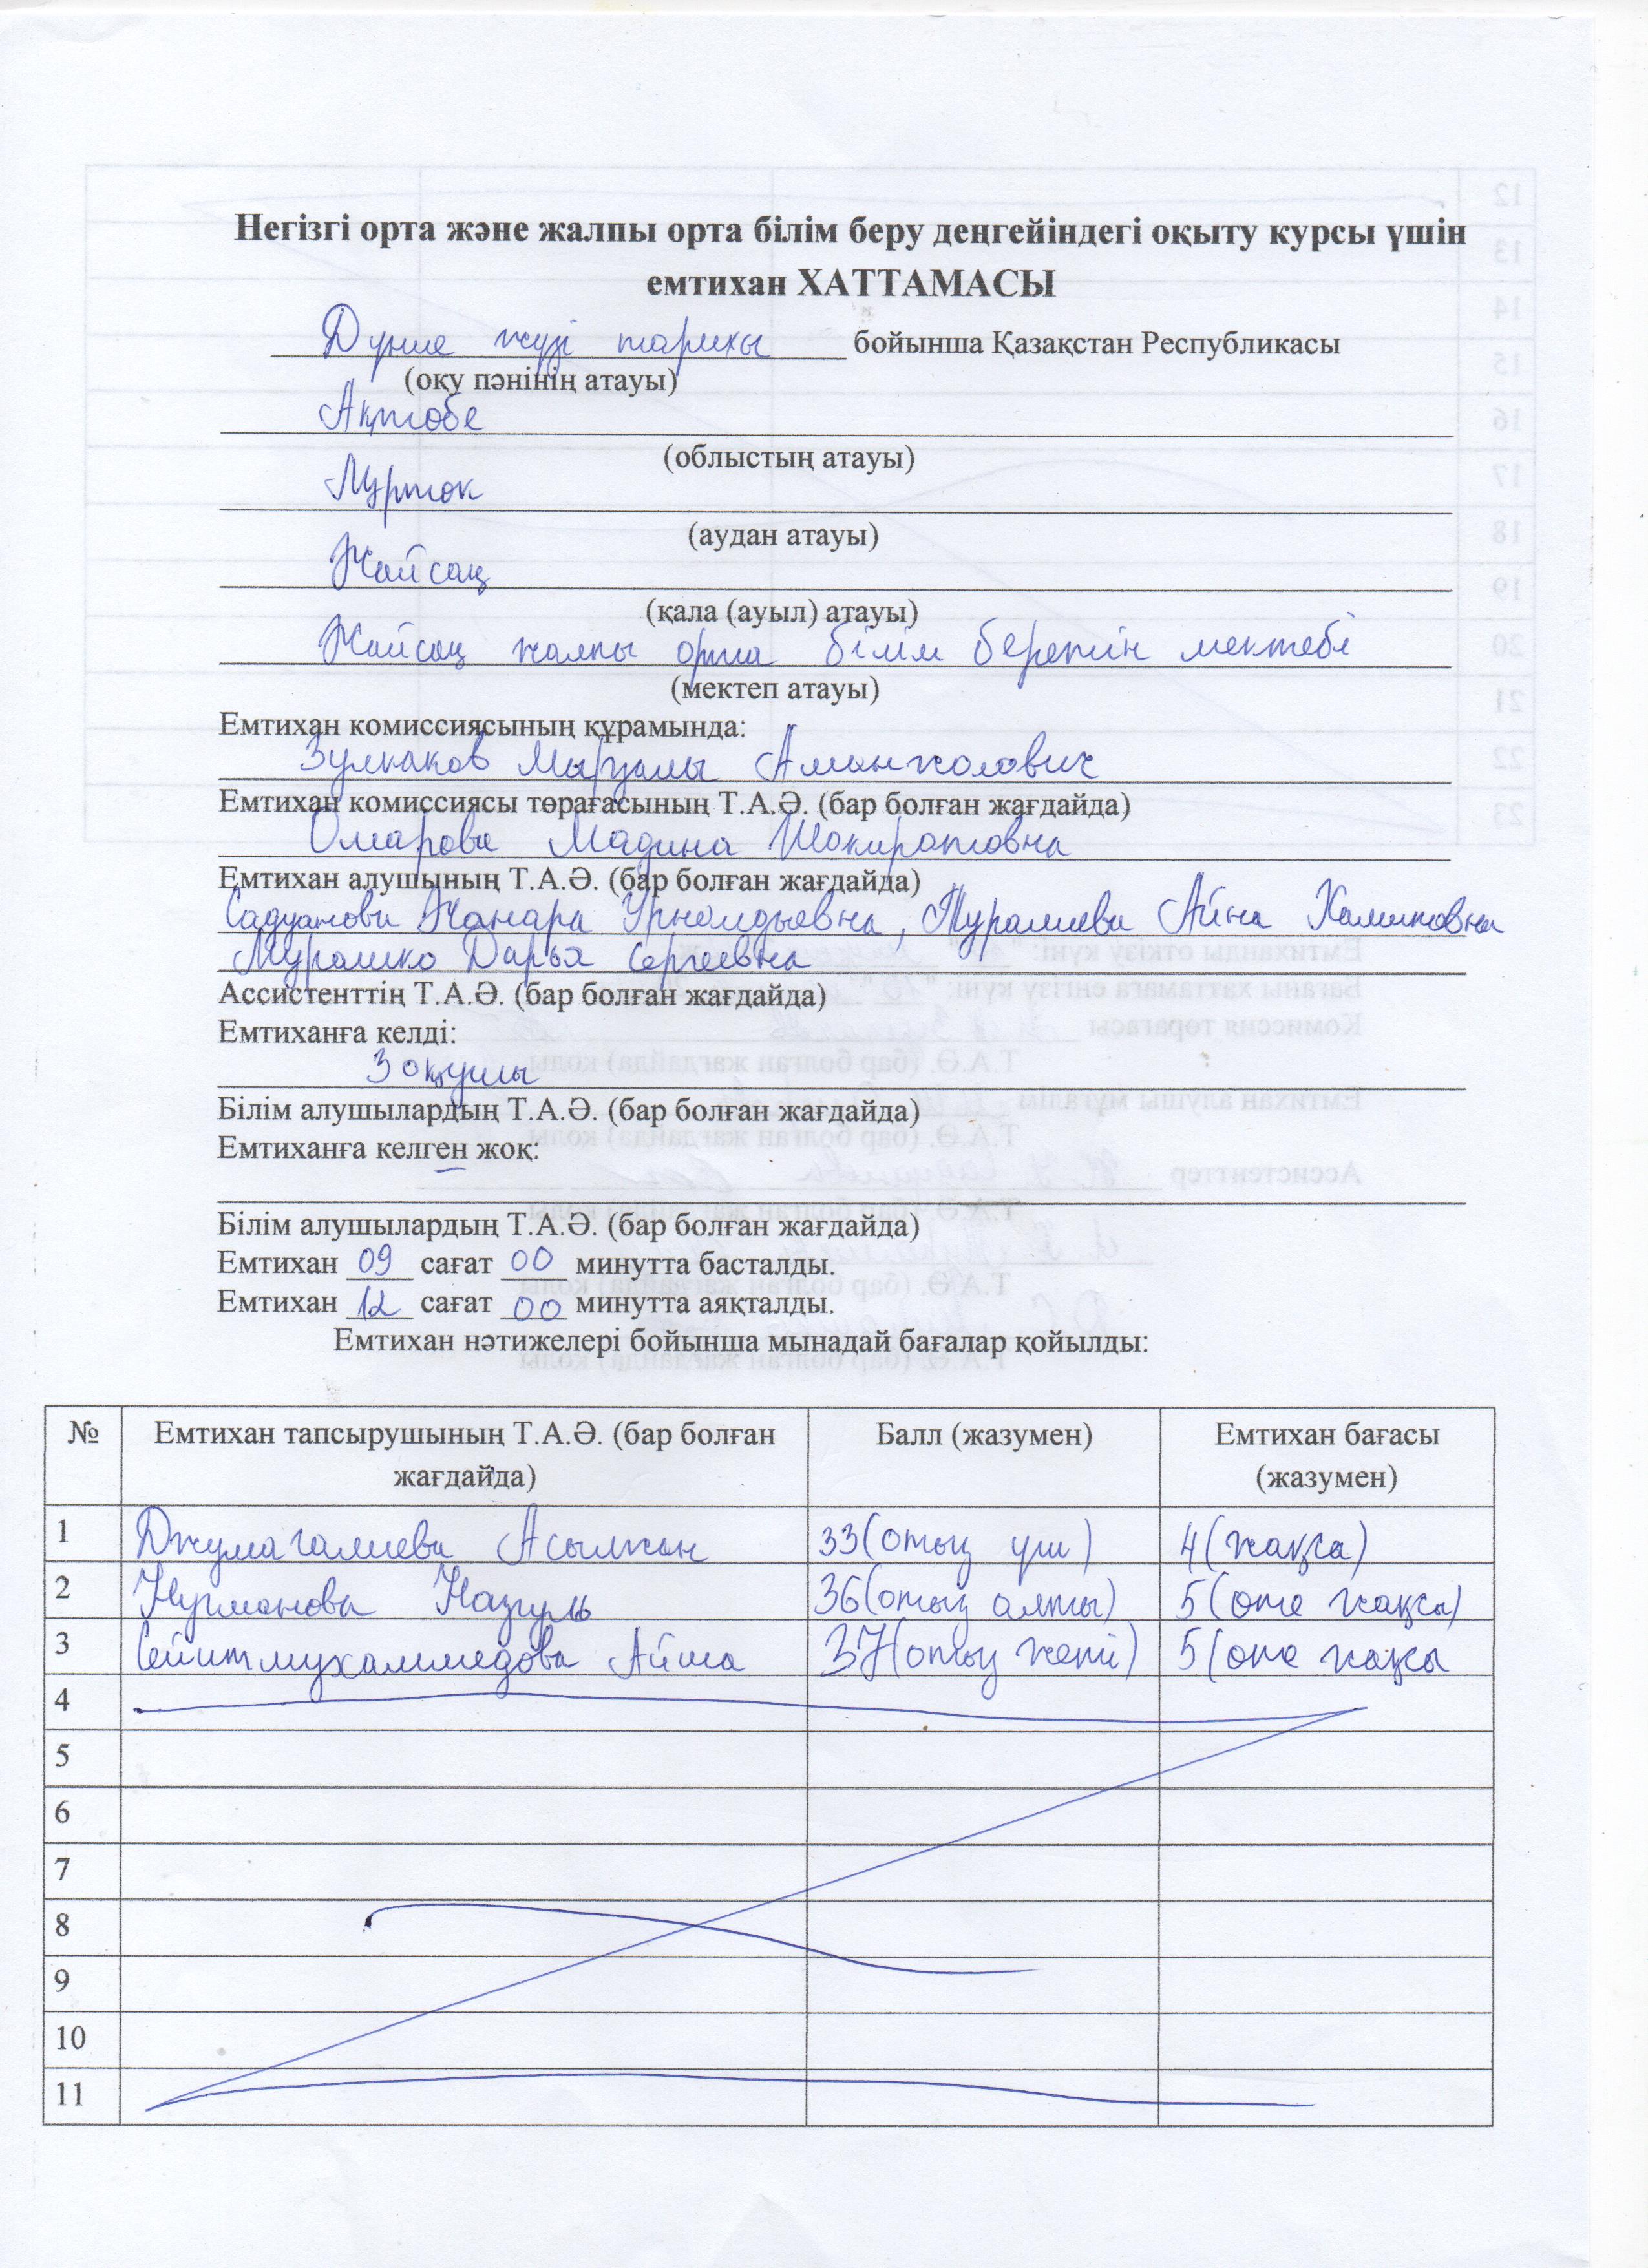 Негізгі орта және жалпы орта білім беру деңгейіндегі оқыту курсы үшін
емтихан ХАТТАМАСЫ
Дүние жүзі тарихы бойынша Қазақстан Республикасы
(оқу пәнінің атауы)
Ақтөбе
(облыстың атауы)
Мұрток
(аудан атауы)
Жайсаң
(қала (ауыл) атауы)
Жайсаң жалпы орта білім беретін мектебі
(мектеп атауы)
Емтихан комиссиясының құрамында:
Зулкаков Мырзалы Аманжолович
Емтихан комиссиясы төрағасының Т.А.Ә. (бар болған жағдайда)
Омарова Мадина Шокиратовна
Емтихан алушының Т.А.Ә. (бар болған жағдайда)
Садуанова Жанара, Туралиева Айна Халиковна
Мурашко Дарья Сергеевна
Ассистенттің Т.А.Ә. (бар болған жағдайда)
Емтиханға келді:
3 оқушы
Білім алушылардың Т.А.Ә. (бар болған жағдайда)
Емтиханға келген жоқ:
Білім алушылардың Т.А.Ә. (бар болған жағдайда)
Емтихан 09 сағат 00 минутта басталды.
Емтихан 12 сағат 00 минутта аяқталды.
Емтихан нәтижелері бойынша мынадай бағалар қойылды:
№ Емтихан тапсырушының Т.А.Ә. (бар болған жағдайда) Балл (жазумен) Емтихан бағасы (жазумен)
1 Джумагалиева Асылжан 33(отыз үш) 4(жақсы)
2 Нугманова Назгуль 36(отыз алты) 5(өте жақсы)
3 Сейитмухаммедова Айша 37(отыз жеті) 5(өте жақсы
4
5
6
7
8
9
10
11